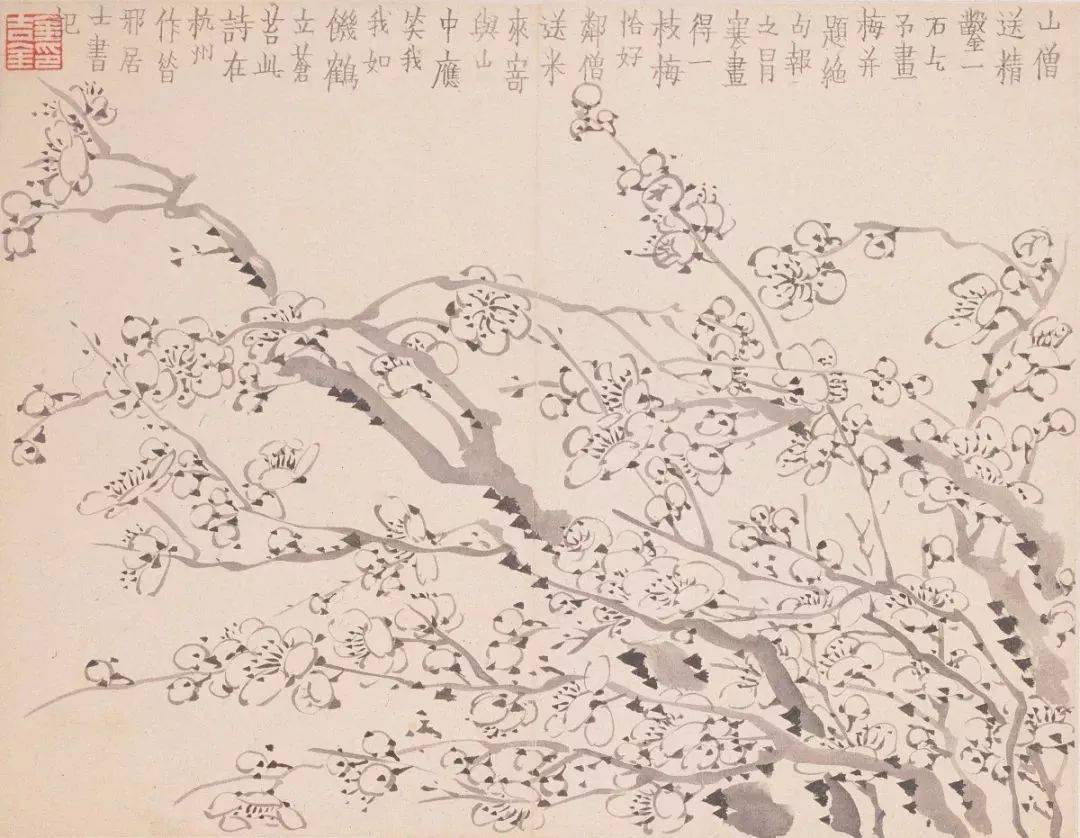 山僧
送精
鑿一
石乞
予畫
梅并
題絶
句報
之冒
寒畫
得一
枝梅
恰好
鄰僧
送米
來寄
與山
中應
笑我
我如
饑鶴
立蒼
苔此
詩在
杭州
作昔
邪居
士書
記
金吉金印